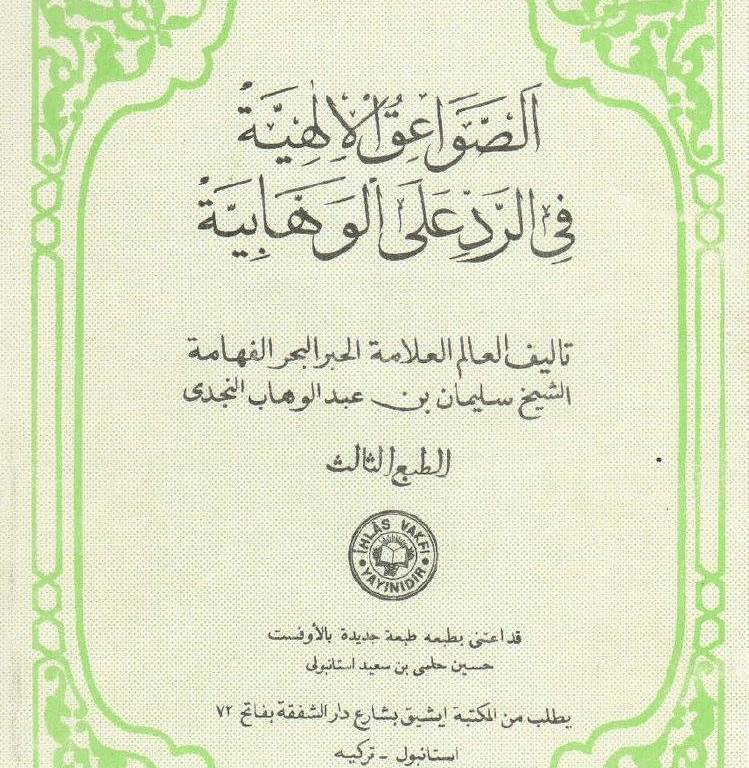 الصَّوَاعِقُ الْإِلٰهِيَّةُ
فِي الرَّدِّ عَلَى الْوَهَّابِيَّةُ
تاليف العالم العلامة الحبر البحر الفهامة
الشيخ سليمان بن عبد الوهاب النجدى
الطبع الثالث
İHLÂS VAKFI
YAYINIDIR
قد اعتنى بطبعه طبعة جديدة بالأوفست
حسين حلمى بن سعيد استانبولى
يطلب من المكتبة ايشيق بشارع دار الشفقة بفاتح ٧٢
استانبول - تركيه